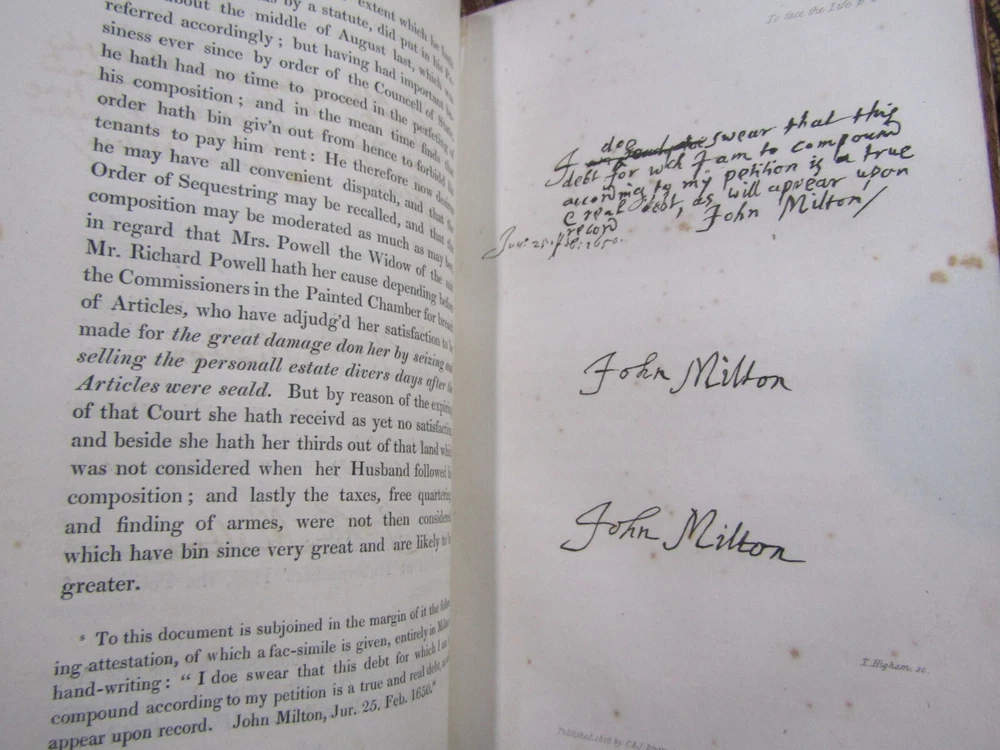 extent which he
by a statute, did put in his Pe-
about the middle of August last, which was
referred accordingly; but having had important
siness ever since by order of the Councell of State,
he hath had no time to proceed in the perfeting of
his composition; and in the mean time finds that
order hath bin giv'n out from hence to forbid his
tenants to pay him rent: He therefore now desires
he may have all convenient dispatch, and that the
Order of Sequestring may be recalled, and that the
composition may be moderated as much as may be,
in regard that Mrs. Powell the Widow of the said
Mr. Richard Powell hath her cause depending before
the Commissioners in the Painted Chamber for breach
of Articles, who have adjudg'd her satisfaction to be
made for the great damage don her by seizing and
selling the personall estate divers days after the
Articles were seald. But by reason of the expiring
of that Court she hath receivd as yet no satisfaction
and beside she hath her thirds out of that land which
was not considered when her Husband followed his
composition; and lastly the taxes, free quartering
and finding of armes, were not then considered
which have bin since very great and are likely to be
greater.
To this document is subjoined in the margin of it the follow-
ing attestation, of which a fac-simile is given, entirely in Milton's
hand-writing: "I doe swear that this debt for which I am
compound according to my petition is a true and real debt, as
appear upon record. John Milton, Jur. 25. Feb. 1650."
To face the Life p.
doe
I swear that this
debt for wch I am to compound
according to my petition is a true
& real debt, as will appear upon
record John Milton/
Jur. 25. Feb: 1650.
John Milton
John Milton
T. Higham. sc.
Published, 1826 by C & J